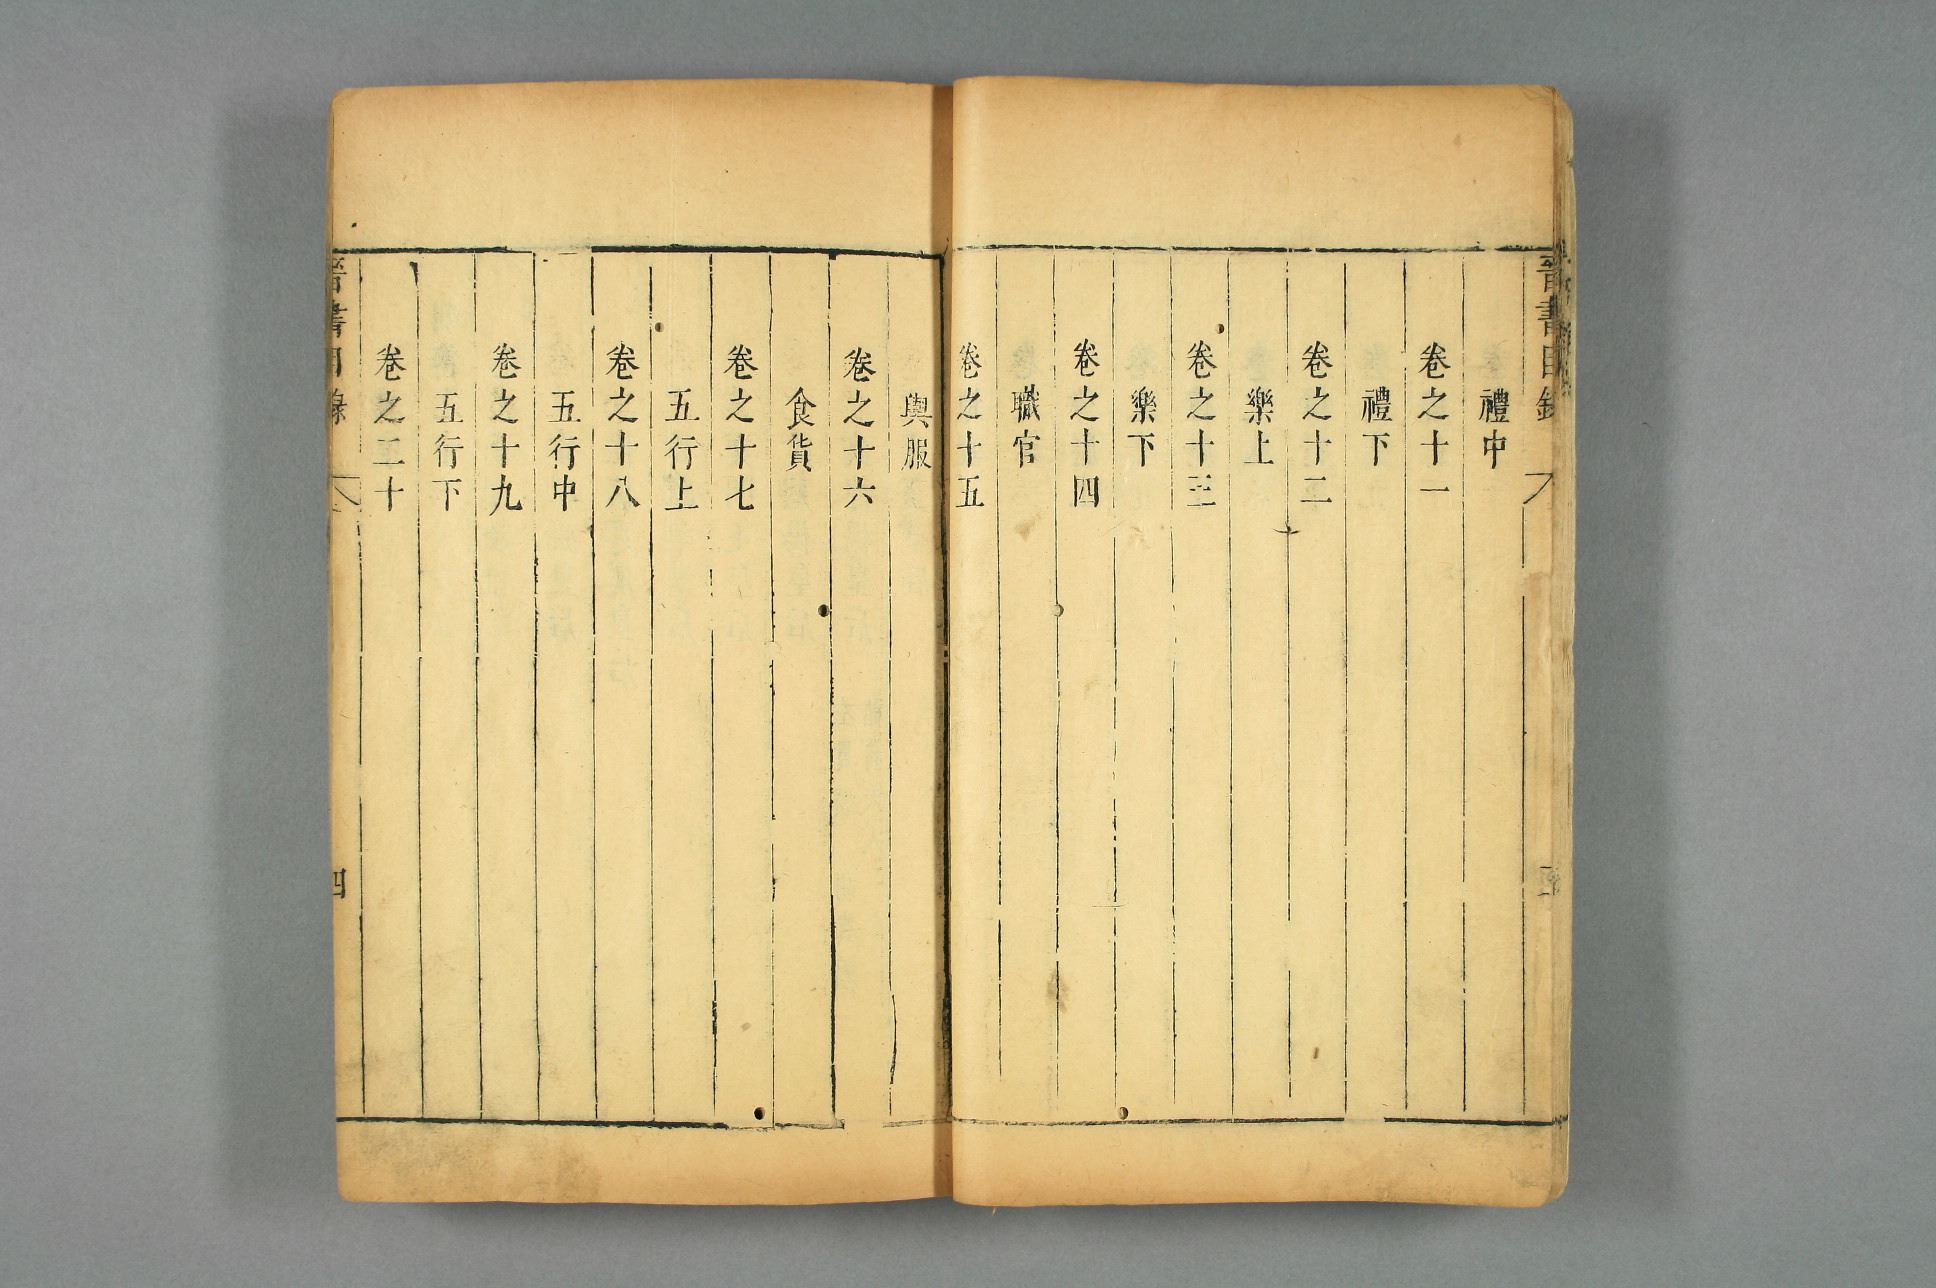 晉書目錄
禮中
卷之十一
禮下
卷之十二
樂上
卷之十三
樂下
卷之十四
職官
卷之十五
輿服
卷之十六
食貨
卷之十七
五行上
卷之十八
五行中
卷之十九
五行下
卷之二十
晉書目錄
四